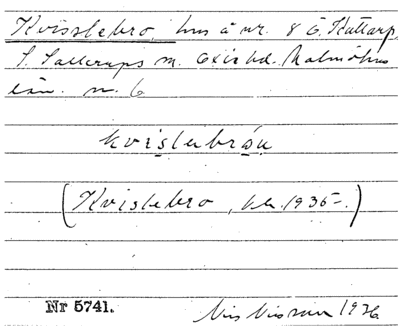 Kvisslebro hus å nr. 8 Ö. Kattarp,
S. Sallerups sn. Oxie hd. Malmöhus
län. n. 6
kvislabråu
(Kvislebro, bla. 1935-.)
Nr 5741.
Nils Nilsson 1936